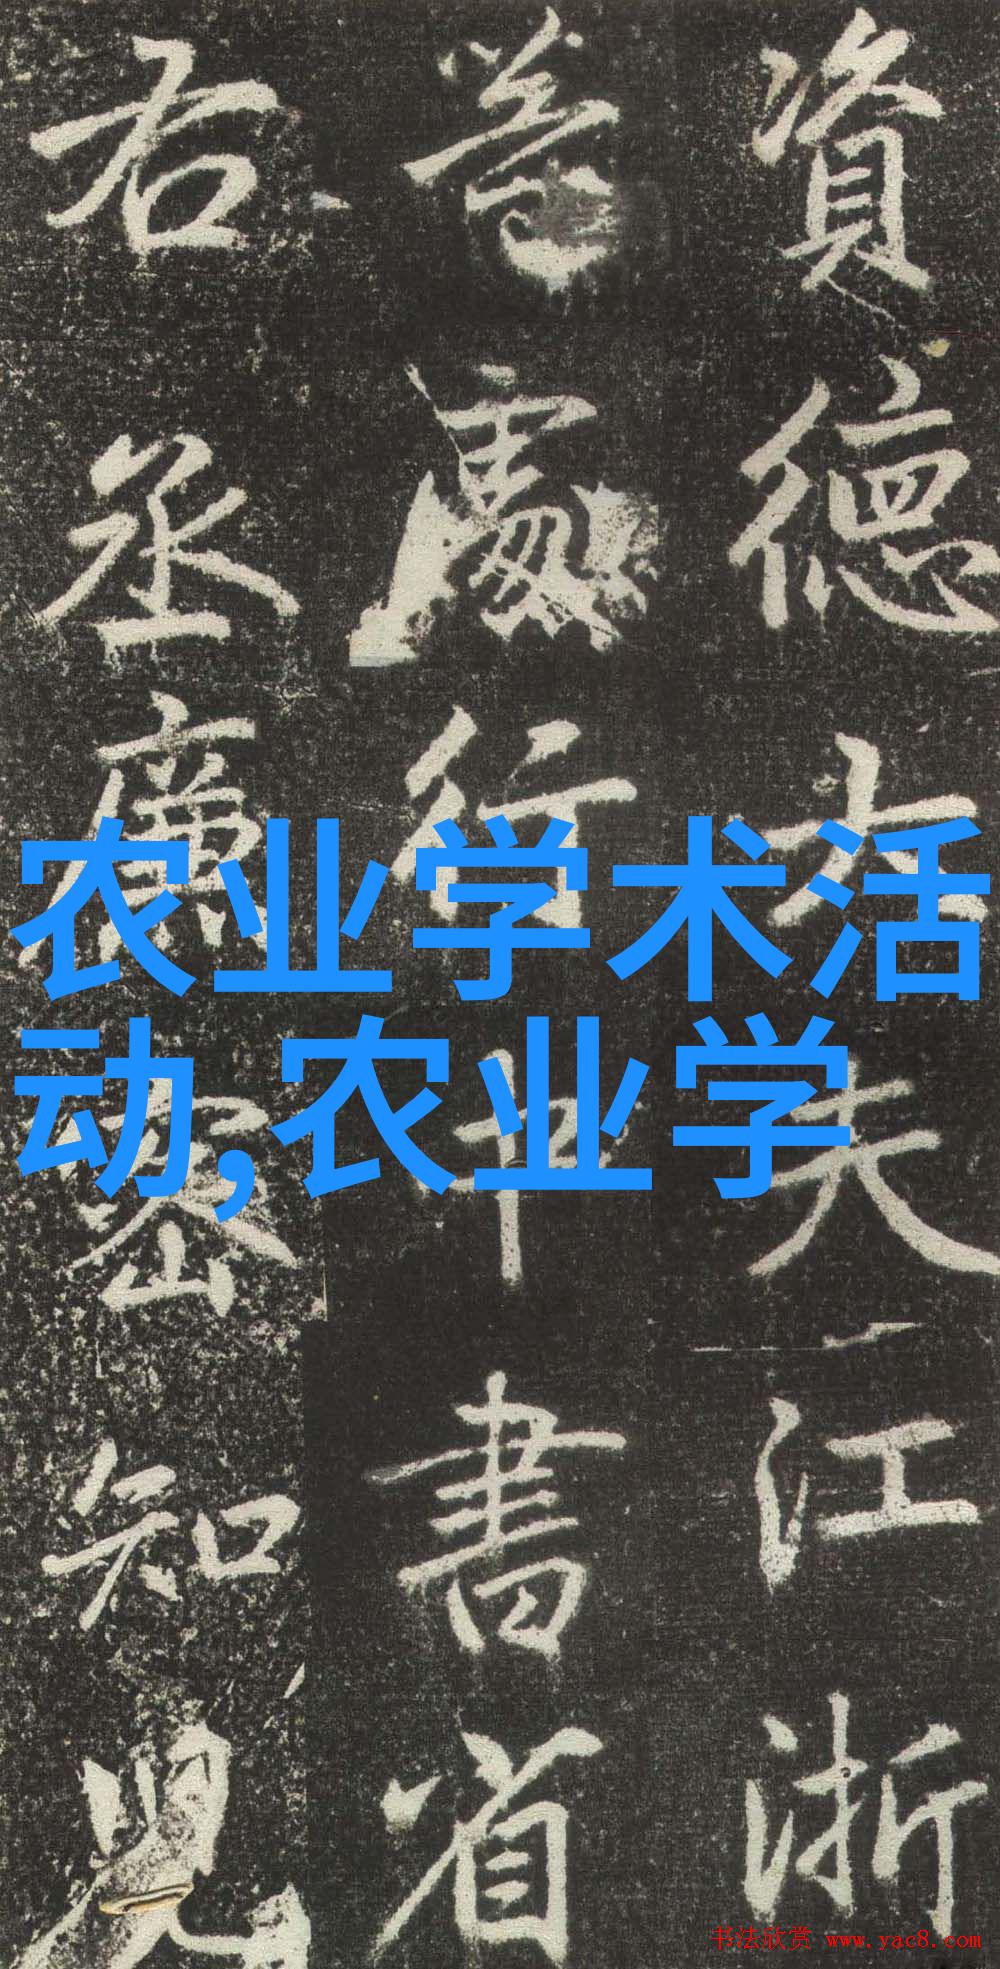 資德大夫江浙
等處行中書省
右丞廉密知兒
农业学术活
动,农业学
书法欣赏 www.yac8.com